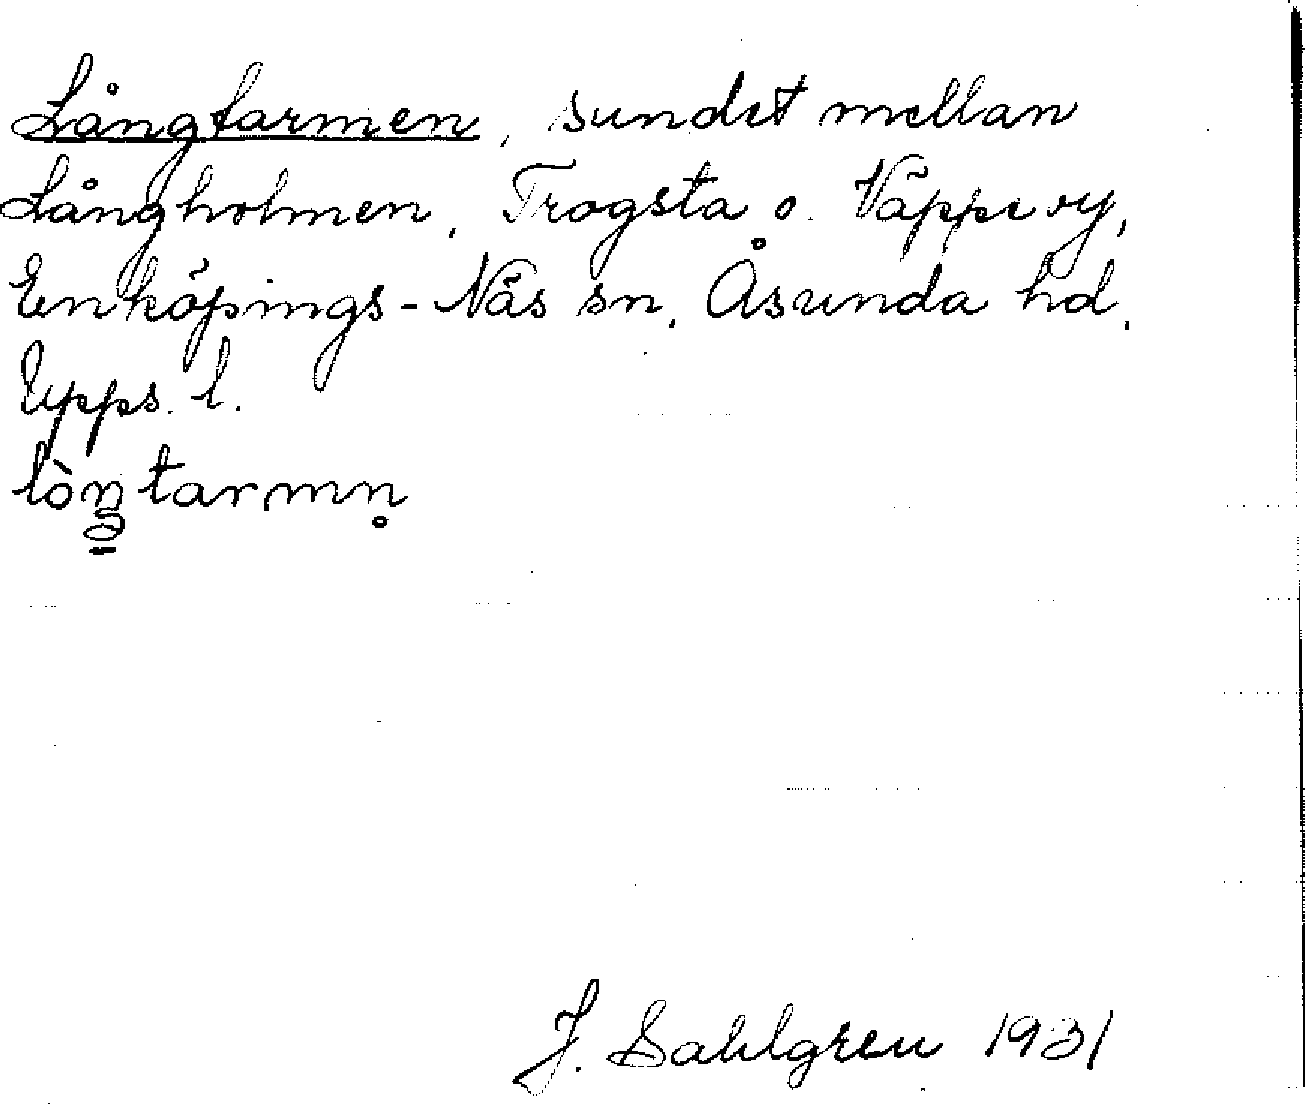 Långtarmen, sundet mellan
Långholmen, Trogsta o. Väppeby,
Enköpings-Näs sn, Åsunda hd,
Upps. l.
lòŋtarmn̥
J. Sahlgren 1931